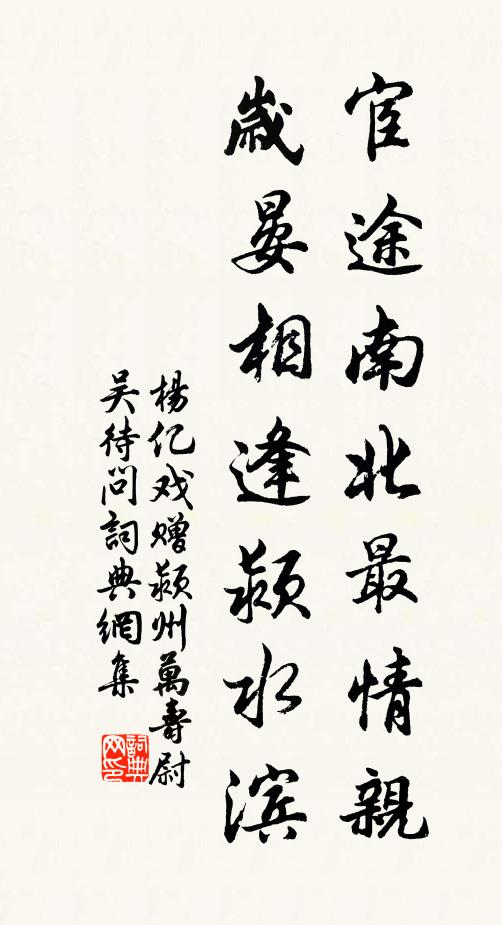 宦途南北最情親
歲晏相逢颍水滨
楊亿戏赠颍州萬壽尉
吴待问詞典網集
詞典网印